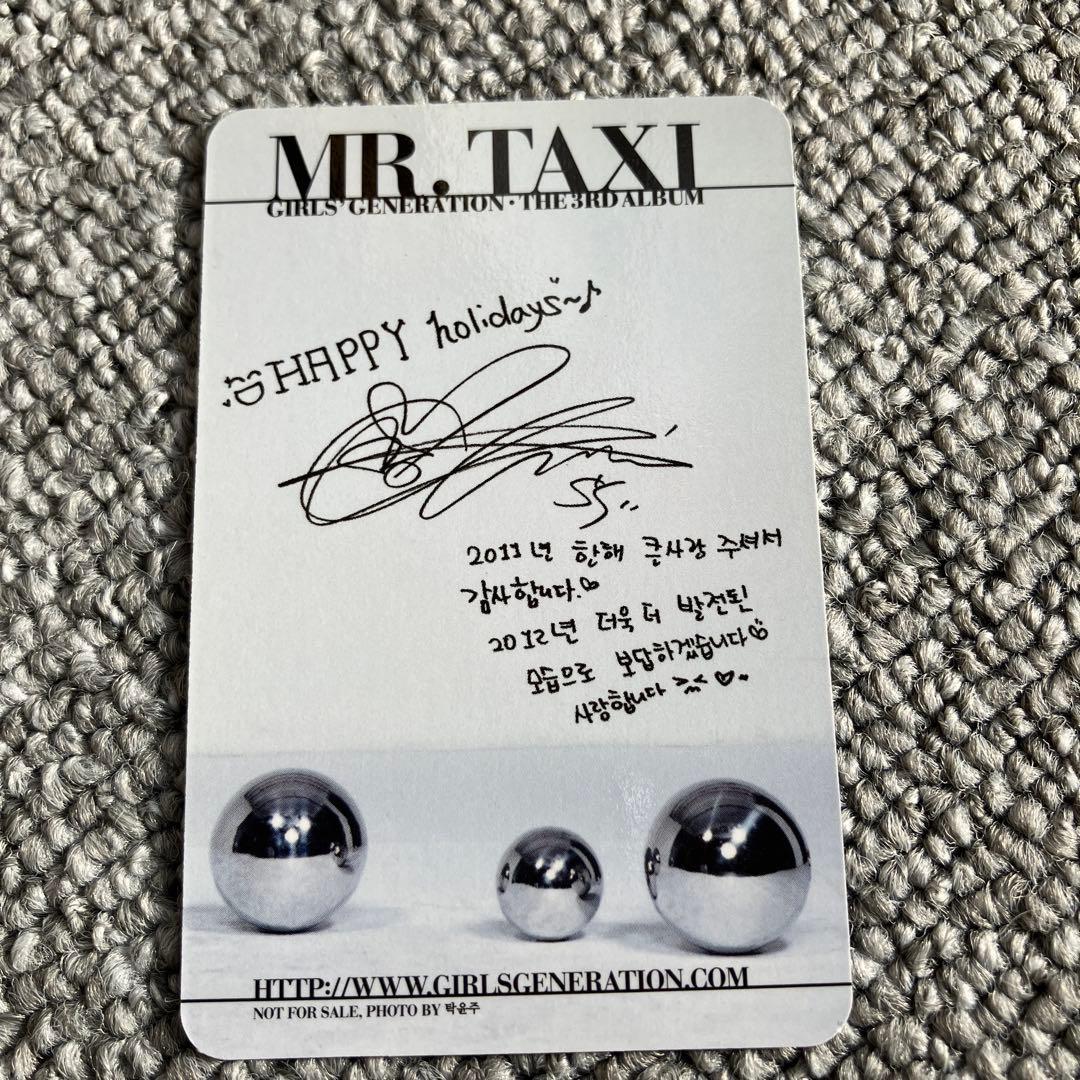 MR. TAXI
GIRLS' GENERATION · THE 3RD ALBUM
HAPPY holidays~♪
2011년 한해 큰사랑 주셔서
감사합니다.♡
2012년 더욱 더 발전된
모습으로 보답하겠습니다♡
사랑합니다 >.< ♡.
HTTP://WWW.GIRLSGENERATION.COM
NOT FOR SALE, PHOTO BY 탁윤주